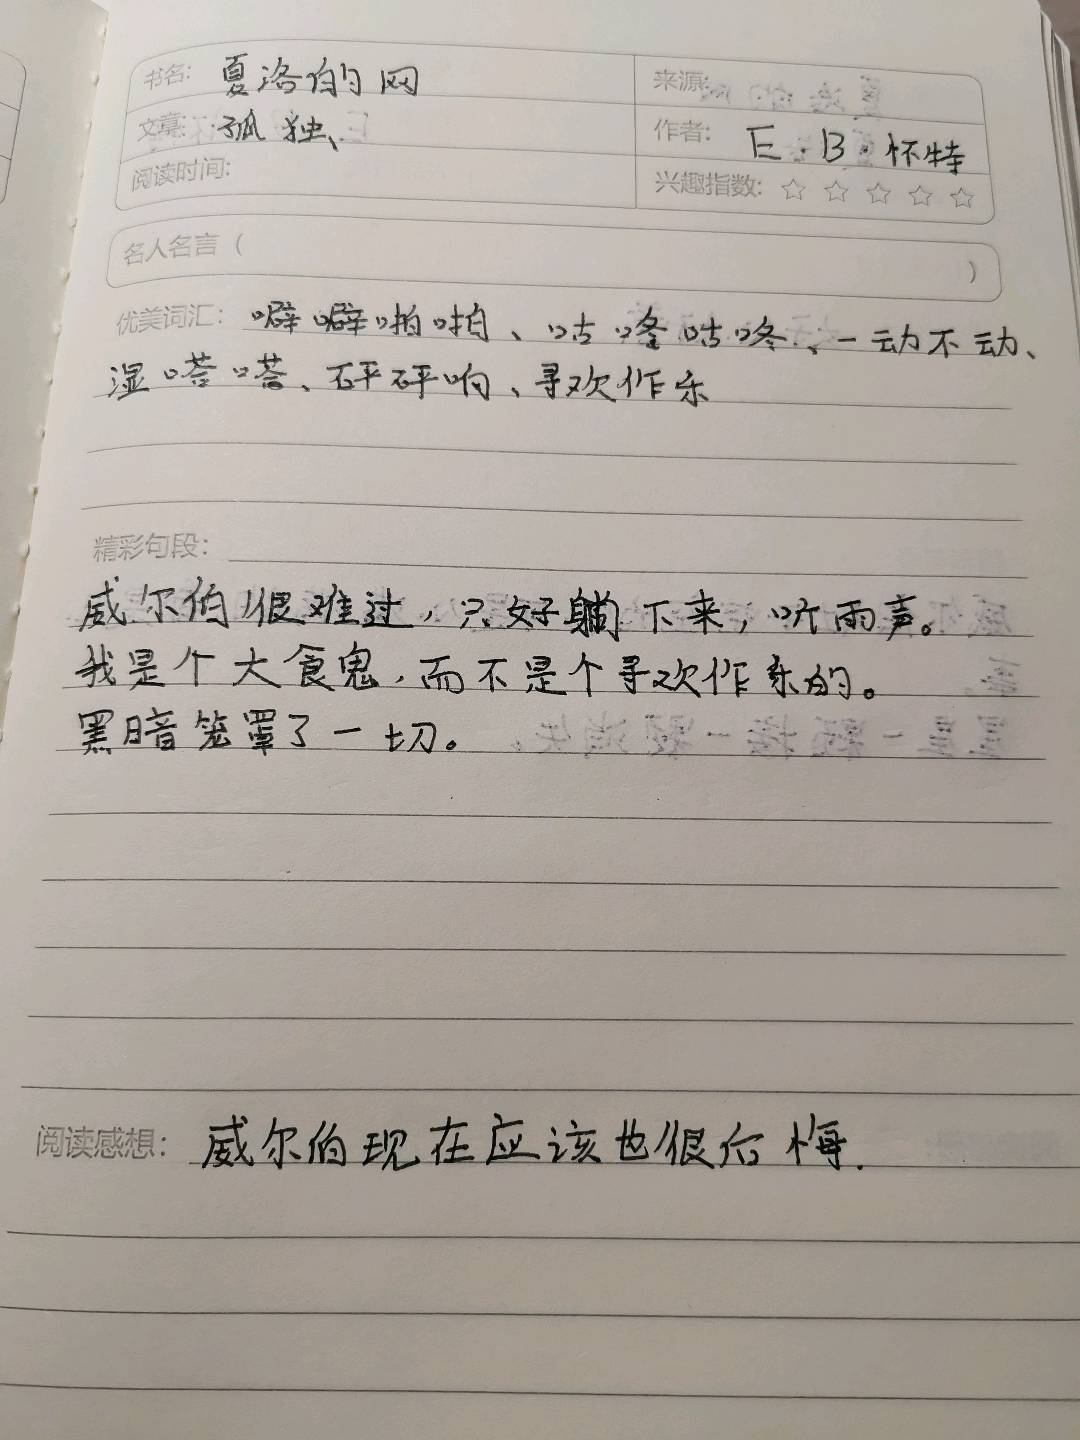 书名: 夏洛的网
来源:
文章: 孤独
作者: E·B·怀特
阅读时间:
兴趣指数: ☆ ☆ ☆ ☆ ☆
名人名言 (                    )
优美词汇: 噼噼啪啪、咕咚咕咚、一动不动、
湿嗒嗒、砰砰响、寻欢作乐
精彩句段:
威尔伯很难过,只好躺下来,听雨声。
我是个大食鬼,而不是个寻欢作乐的。
黑暗笼罩了一切。
阅读感想: 威尔伯现在应该也很后悔.